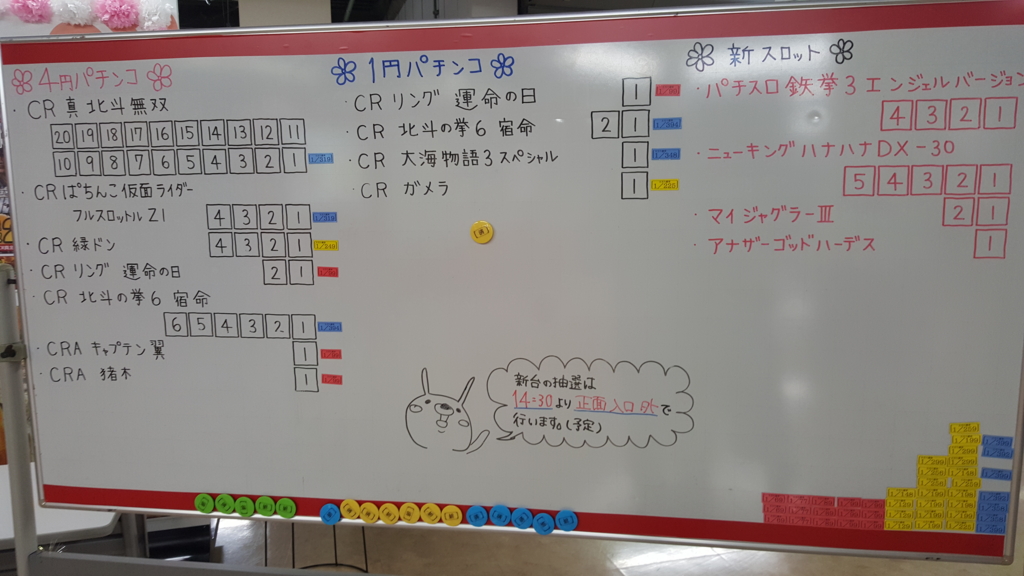 4円パチンコ
・CR 真 北斗無双
20 19 18 17 16 15 14 13 12 11
10 9 8 7 6 5 4 3 2 1
CR ぱちんこ 仮面ライダー
フルスロットル Z1 4 3 2 1
・CR 緑ドン 4 3 2 1
・CR リング 運命の日 2 1
・CR 北斗の拳6 宿命
6 5 4 3 2 1
・CRA キャプテン翼 1
・CRA 猪木 1
1円パチンコ
・CR リング 運命の日 1
・CR 北斗の拳6 宿命 2 1
・CR 大海物語3スペシャル 1
CR ガメラ 1
新スロット
・パチスロ鉄拳3 エンジェルバージョン
4 3 2 1
・ニューキングハナハナDX-30
5 4 3 2 1
・マイジャグラーⅢ 2 1
・アナザーゴッドハーデス 1
新台の抽選は
14:30より正面入口外で
行います。(予定)